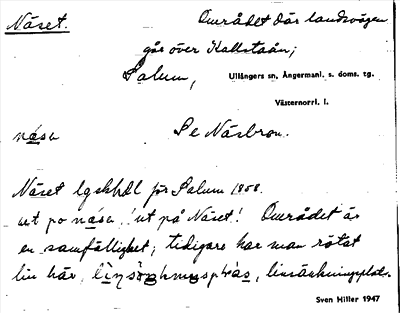 Näset.
Området där landsvägen
går över Kallstaån;
Salum,
Ullångers sn, Ångermanl. s. doms. tg.
Västernorrl. l.
Se Näsbron.
Näset lgskhdl för Salum 1858.
ut på Näset! Området är
en samfällighet; tidigare har man rötat
lin här,
Sven Hiller 1947